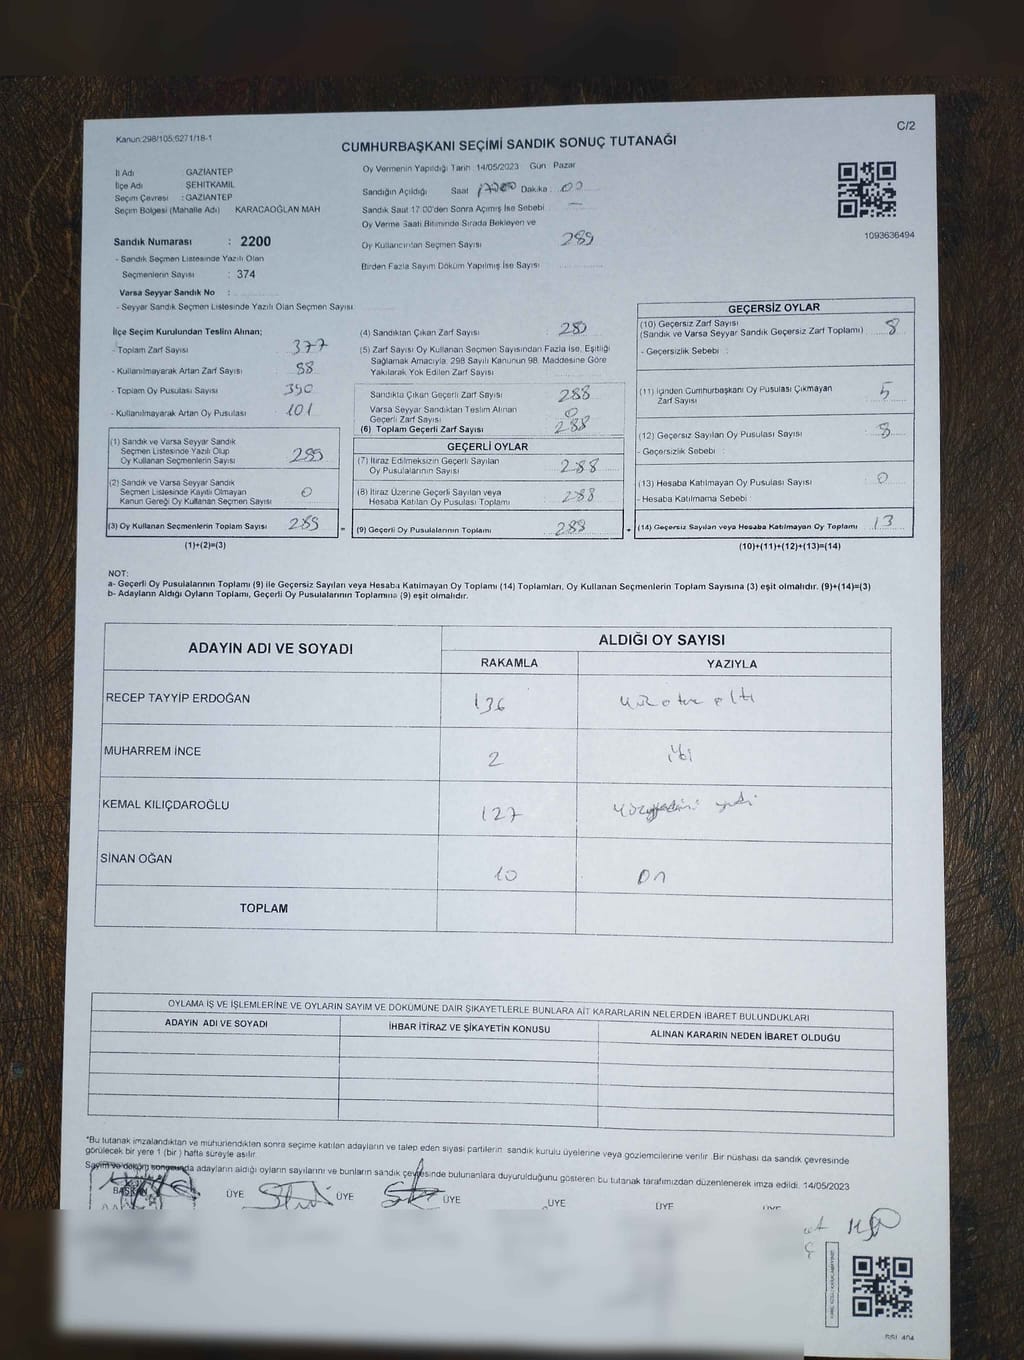 Kanun:298/105;6271/18-1
C/2
CUMHURBAŞKANI SEÇİMİ SANDIK SONUÇ TUTANAĞI
İl Adı GAZİANTEP
İlçe Adı ŞEHİTKAMİL
Seçim Çevresi : GAZİANTEP
Seçim Bölgesi (Mahalle Adı) KARACAOĞLAN MAH
Sandık Numarası : 2200
- Sandık Seçmen Listesinde Yazılı Olan
Seçmenlerin Sayısı : 374
Varsa Seyyar Sandık No :
- Seyyar Sandık Seçmen Listesinde Yazılı Olan Seçmen Sayısı
Oy Vermenin Yapıldığı Tarih 14/05/2023 Gün Pazar
Sandığın Açıldığı Saat Dakika : 00
Sandık Saat 17:00'den Sonra Açımış İse Sebebi —
Oy Verme Saati Bitiminde Sırada Bekleyen ve
Oy Kullandırılan Seçmen Sayısı 289
Birden Fazla Sayım Döküm Yapılmış İse Sayısı
1093636494
İlçe Seçim Kurulundan Teslim Alınan;
- Toplam Zarf Sayısı 377
- Kullanılmayarak Artan Zarf Sayısı 88
- Toplam Oy Pusulası Sayısı 390
- Kullanılmayarak Artan Oy Pusulası 101
(1) Sandık ve Varsa Seyyar Sandık
Seçmen Listesinde Yazılı Olup
Oy Kullanan Seçmenlerin Sayısı 289
(2) Sandık ve Varsa Seyyar Sandık
Seçmen Listesinde Kayıtlı Olmayan
Kanun Gereği Oy Kullanan Seçmen Sayısı 0
(3) Oy Kullanan Seçmenlerin Toplam Sayısı 289
(1)+(2)=(3)
(4) Sandıktan Çıkan Zarf Sayısı 289
(5) Zarf Sayısı Oy Kullanan Seçmen Sayısından Fazla İse, Eşitliği
Sağlamak Amacıyla, 298 Sayılı Kanunun 98. Maddesine Göre
Yakılarak Yok Edilen Zarf Sayısı
Sandıkta Çıkan Geçerli Zarf Sayısı 288
Varsa Seyyar Sandıktan Teslim Alınan
Geçerli Zarf Sayısı 0
(6) Toplam Geçerli Zarf Sayısı 288
GEÇERLİ OYLAR
(7) İtiraz Edilmeksizin Geçerli Sayılan
Oy Pusulalarının Sayısı 288
(8) İtiraz Üzerine Geçerli Sayılan veya
Hesaba Katılan Oy Pusulası Toplamı 288
= (9) Geçerli Oy Pusulalarının Toplamı 288 +
GEÇERSİZ OYLAR
(10) Geçersiz Zarf Sayısı
(Sandık ve Varsa Seyyar Sandık Geçersiz Zarf Toplamı) 8
- Geçersizlik Sebebi :
(11) İçinden Cumhurbaşkanı Oy Pusulası Çıkmayan
Zarf Sayısı 5
(12) Geçersiz Sayılan Oy Pusulası Sayısı 8
- Geçersizlik Sebebi :
(13) Hesaba Katılmayan Oy Pusulası Sayısı 0
- Hesaba Katılmama Sebebi :
(14) Geçersiz Sayılan veya Hesaba Katılmayan Oy Toplamı 13
(10)+(11)+(12)+(13)=(14)
NOT:
a- Geçerli Oy Pusulalarının Toplamı (9) ile Geçersiz Sayılan veya Hesaba Katılmayan Oy Toplamı (14) Toplamları, Oy Kullanan Seçmenlerin Toplam Sayısına (3) eşit olmalıdır. (9)+(14)=(3)
b- Adayların Aldığı Oyların Toplamı, Geçerli Oy Pusulalarının Toplamına (9) eşit olmalıdır.
ADAYIN ADI VE SOYADI ALDIĞI OY SAYISI
RAKAMLA YAZIYLA
RECEP TAYYİP ERDOĞAN 136 yüz otuz altı
MUHARREM İNCE 2 iki
KEMAL KILIÇDAROĞLU 127 yedi
SİNAN OĞAN 10 on
TOPLAM
OYLAMA İŞ VE İŞLEMLERİNE VE OYLARIN SAYIM VE DÖKÜMÜNE DAİR ŞİKAYETLERLE BUNLARA AİT KARARLARIN NELERDEN İBARET BULUNDUKLARI
ADAYIN ADI VE SOYADI İHBAR İTİRAZ VE ŞİKAYETİN KONUSU ALINAN KARARIN NEDEN İBARET OLDUĞU
*Bu tutanak imzalandıktan ve mühürlendikten sonra seçime katılan adayların ve talep eden siyasi partilerin sandık kurulu üyelerine veya gözlemcilerine verilir. Bir nüshası da sandık çevresinde
görülecek bir yere 1 (bir ) hafta süreyle asılır.
Sayım ve döküm sonucunda adayların aldığı oyların sayılarını ve bunların sandık çevresinde bulunanlara duyurulduğunu gösteren bu tutanak tarafımızdan düzenlenerek imza edildi. 14/05/2023
BAŞKAN ÜYE ÜYE ÜYE ÜYE ÜYE